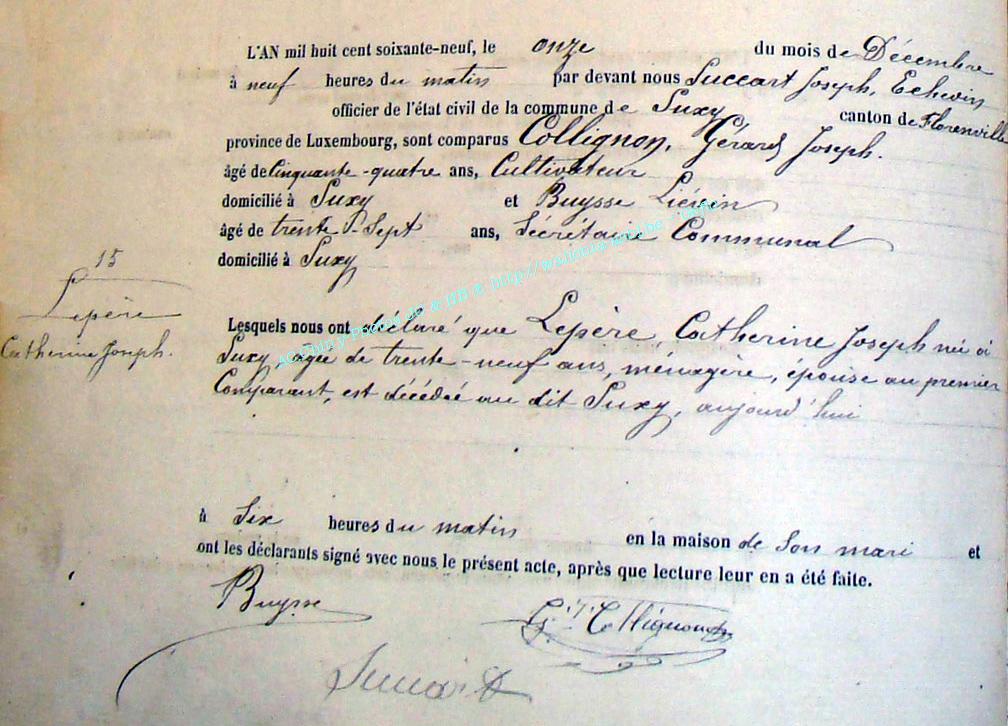 L'AN mil huit cent soixante-neuf, le onze du mois de Décembre
à neuf heures du matin par devant nous Succart Joseph, Echevin
officier de l'état civil de la commune de Suxy canton de Florenville
province de Luxembourg, sont comparus Collignon, Gérard Joseph.
âgé de Cinquante-quatre ans, Cultivateur
domicilié à Suxy et Buysse Liévin
âgé de trente-Sept ans, Sécrétaire Communal
domicilié à Suxy
15
Lepère
Catherine Joseph.
Lesquels nous ont déclaré que Lepère, Catherine Joseph née à
Suxy, agée de trente-neuf ans, ménagère, épouse au premier
Comparant, est décédée au dit Suxy, aujourd'hui
à Six heures du matin en la maison de Son mari et
ont les déclarants signé avec nous le présent acte, après que lecture leur en a été faite.
Buysse
G. J. Collignon
Succart